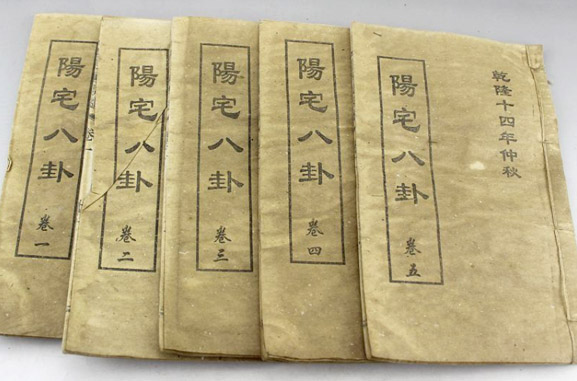 陽宅八卦
卷一
陽宅八卦
卷二
陽宅八卦
卷三
陽宅八卦
卷四
乾隆十四年仲秋
陽宅八卦
卷五